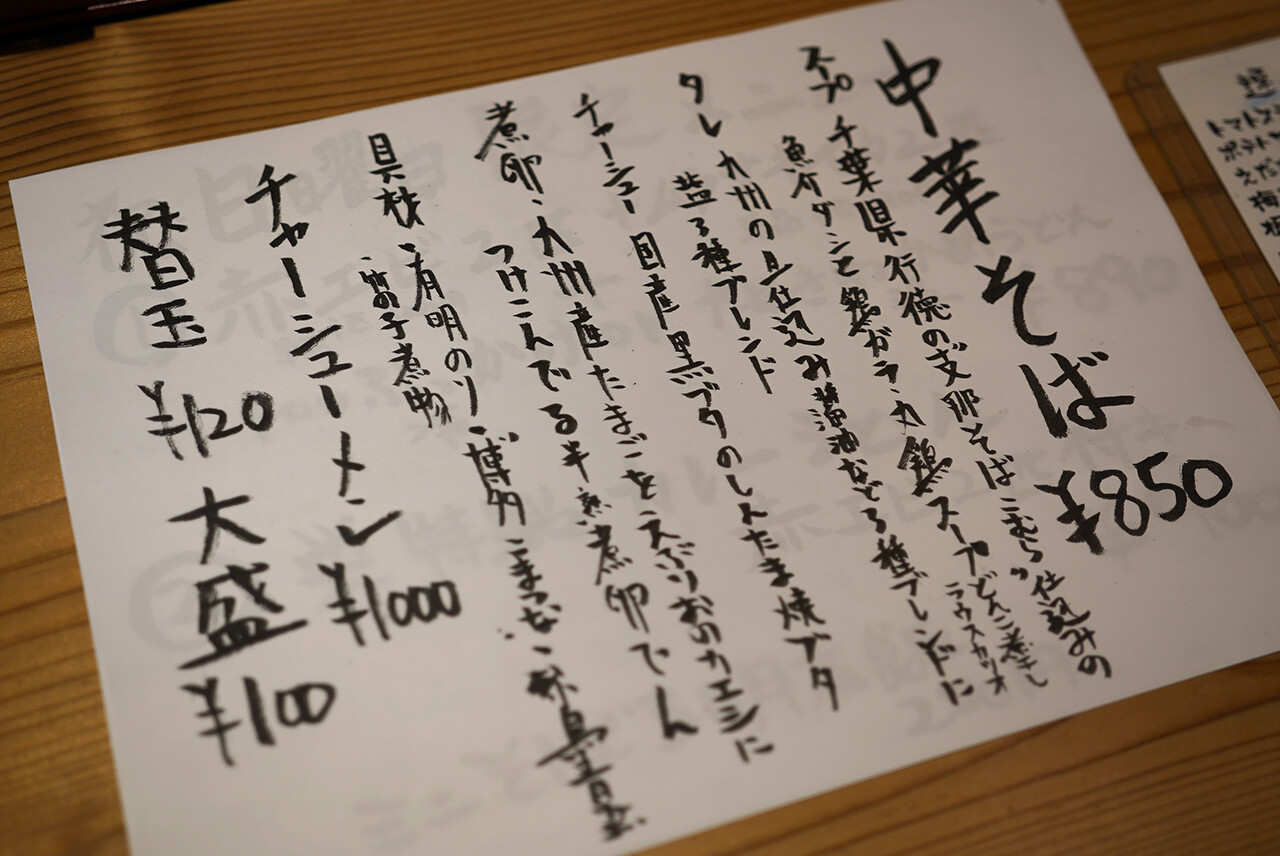 中華そば ¥850
スープ 千葉県行徳の支那そば"こむら"仕込みの
魚介ダシと鶏ガラ・丸鶏スープ どんこ煮干し
ラウスカツオ
タレ 九州の 仕込み醤油など3種ブレンドに
塩3種ブレンド
チャーシュー 国産黒ブタのしんたま焼ブタ
煮卵・九州産たまごをスぶりおのカエシに
つけこんでる半熟煮卵でん
具材・有明のり・博多こまつな・
・竹の子煮物
チャーシューメン ¥1000
替玉 ¥120 大盛 ¥100
トマトス
ポテト
えだ
梅